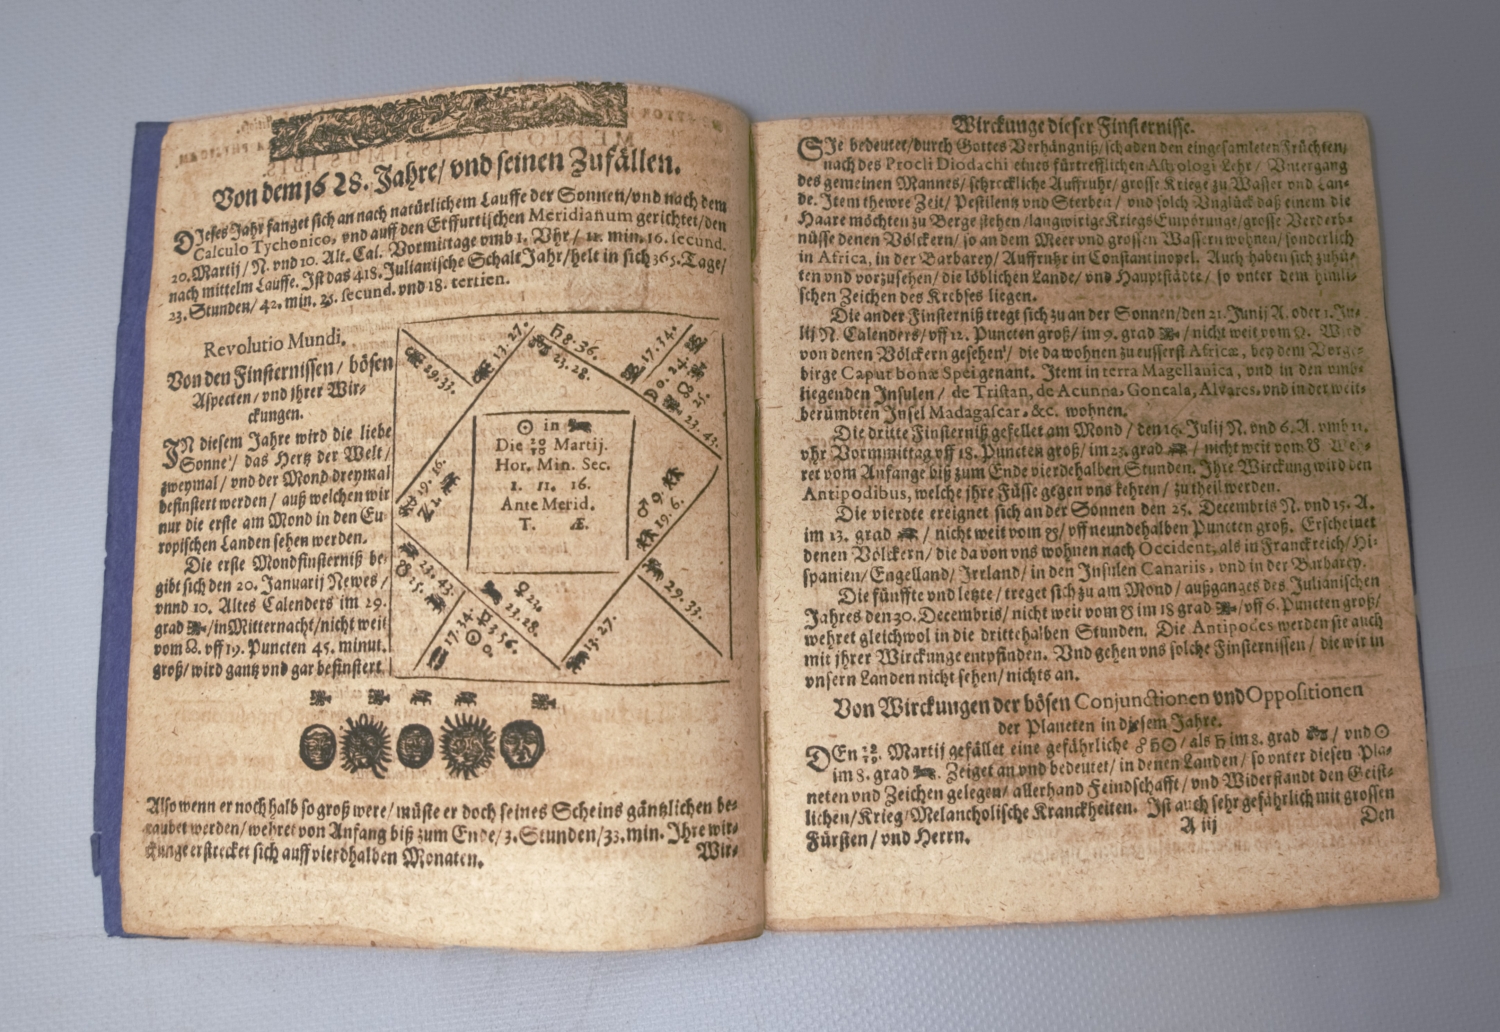 Von dem 1628. Jahre/ vnd seinen Zufällen.
DJeses Jahr fanget sich an nach natürlichem Lauffe der Sonnen/vnd nach dem
Calculo Tychonico, vnd auff den Erffurtischen Meridianum gerichtet/den
20. Martij/ N. vnd 10. Alt. Cal. Vormittage vmb 1. Vhr/ 11. min. 16. secund.
nach mittelm Lauffe. Ist das 418. Julianische Schalt Jahr/helt in sich 365. Tage/
23. Stunden/ 42. min. 25. secund. vnd 18. tertien.
Revolutio Mundi.
Von den Finsternissen/ bösen
Aspecten/ vnd jhrer Wir-
ckungen.
IN diesem Jahre wird die liebe
Sonne/ das Hertz der Welt/
zweymal/ vnd der Mond dreymal
befinstert werden/ auß welchen wir
nur die erste am Mond in den Eu
ropischen Landen sehen werden.
Die erste Mondfinsterniß be-
gibt sich den 20. Januarij Newes/
vnnd 10. Altes Calenders im 29.
grad ♌/in Mitternacht/nicht weit
vom ☊. vff 19. Puncten 45. minut.
groß/ wird gantz vnd gar befinstert
29.33.
13. 27.
♄ 8. 36.
23. 28.
17. 14.
☽ 0. 24.
☋ 25.
23. 43.
♂ 9.
19. 6.
29. 33.
13. 27.
♀ 22.
23. 28.
☿ 3 56.
☉ 0.
17. 34.
23. 43.
☊ 25.
19. 16.
♃ 2.
☉ in ♈
Die 20/10 Martij.
Hor. Min. Sec.
1. 11. 16.
Ante Merid.
T. Æ.
Also wenn er noch halb so groß were/ müste er doch seines Scheins gäntzlichen be-
raubet werden/ wehret von Anfang biß zum Ende/ 3. Stunden/ 33. min. Ihre wir-
ckunge erstrecket sich auff vierdhalben Monaten.
Wir-
Wirckunge dieser Finsternisse.
SJe bedeutet/durch Gottes Verhängniß/schaden den eingesamleten Früchten/
nach des Procli Diodachi eines fürtrefflichen Astrologi Lehr/ Vntergang
des gemeinen Mannes/ schreckliche Auffruhr/ grosse Kriege zu Wasser vnd Lan-
de. Item thewre Zeit/ Pestilentz vnd Sterben/ vnd solch Vnglück daß einem die
Haare möchten zu Berge stehen/langwirige Kriegs Empörunge/grosse Verderb-
nüsse denen Völckern/ so an dem Meer vnd grossen Wassern wohnen/ sonderlich
in Africa, in der Barbarey/ Auffruhr in Constantinopel. Auch haben sich zuhü-
ten vnd vorzusehen/ die löblichen Lande/ vnd Hauptstädte/ so vnter dem himli-
schen Zeichen des Krebses liegen.
Die ander Finsterniß tregt sich zu an der Sonnen/den 21. Junij A. oder 1. Ju-
lij N. Calenders/ vff 12. Puncten groß/ im 9. grad ♋/ nicht weit vom ☊. Wird
von denen Völckern gesehen/ die da wohnen zu eusserst Africæ, bey dem Verge-
birge Caput bonæ Spei genant. Item in terra Magellanica, vnd in den vmb-
liegenden Insulen/ de Tristan, de Acunna, Goncala, Alvares, vnd in der weit-
berümbten Insel Madagascar. &c. wohnen.
Die dritte Finsterniß gefellet am Mond/ den 16. Julij N. vnd 6. A. vmb 11.
vhr Vormittag vff 18. Puncten groß/ im 23. grad ♑/ nicht weit vom ☋ Weh-
ret vom Anfange biß zum Ende vierdehalben Stunden. Ihre Wirckung wird den
Antipodibus, welche jhre Füsse gegen vns kehren/ zu theil werden.
Die vierdte ereignet sich an der Sonnen den 25. Decembris N. vnd 15. A.
im 13. grad ♑/ nicht weit vom ☋/ vff neundehalben Puncten groß. Erscheinet
denen Völckern/ die da von vns wohnen nach Occident, als in Franckreich/Hi-
spanien/ Engelland/ Jrrland/ in den Insulen Canariis, vnd in der Barbarey.
Die fünffte vnd letzte/ treget sich zu am Mond/ außganges des Julianischen
Jahres den 30. Decembris/ nicht weit vom ☋ im 18 grad ♋/ vff 6. Puncten groß/
wehret gleichwol in die drittehalben Stunden. Die Antipodes werden sie auch
mit jhrer Wirckunge entpfinden. Vnd gehen vns solche Finsternissen/ die wir in
vnsern Landen nicht sehen/ nichts an.
Von Wirckungen der bösen Conjunctionen vnd Oppositionen
der Planeten in diesem Jahre.
DEn Martij gefället eine gefährliche ☍ ♄ ☉/ als ♄ im 8. grad ♎/ vnd ☉
im 8. grad ♈. Zeiget an vnd bedeutet/ in denen Landen/ so vnter diesen Pla-
neten vnd Zeichen gelegen/ allerhand Feindschafft/ vnd Widerstandt den Geist-
lichen/ Krieg/ Melancholische Kranckheiten. Ist auch sehr gefährlich mit grossen
Fürsten/ vnd Herrn.
A iij
Den